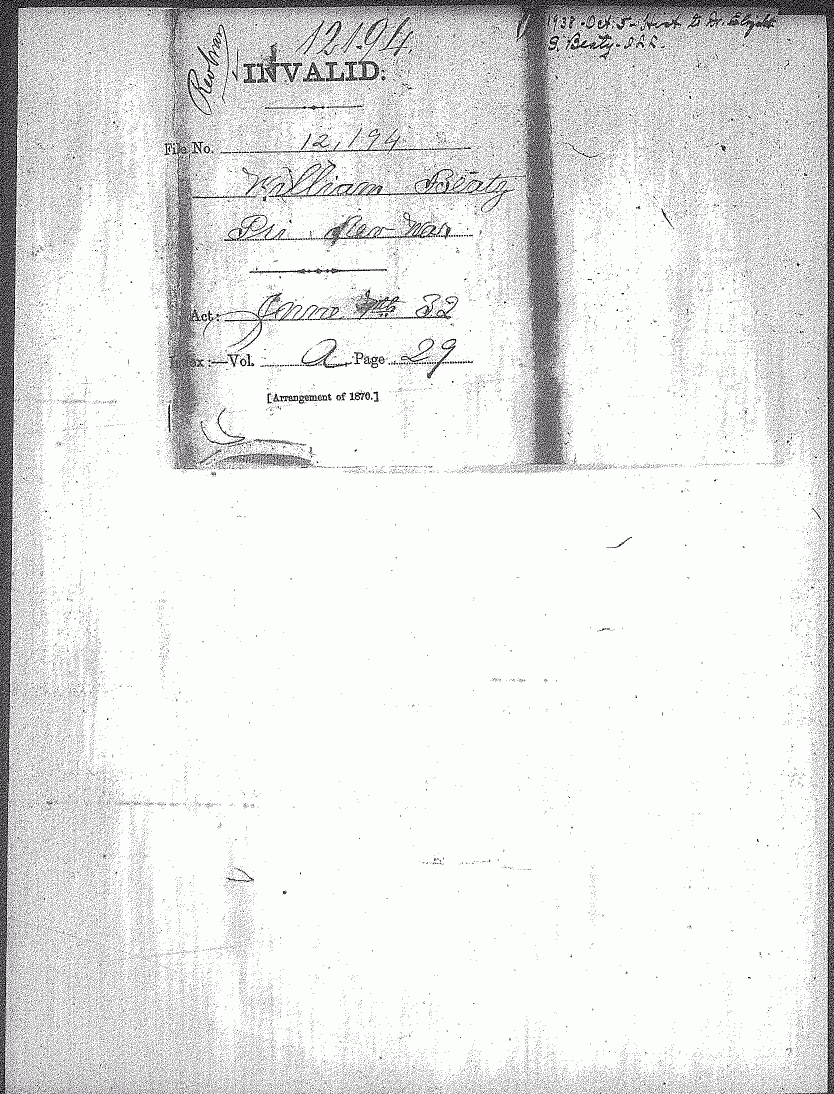 12194
Rev War
INVALID.
File No. 12,194
William Beaty
Rev War
Act: June 7th 32
Index:—Vol. A Page 29
[Arrangement of 1870.]
1938-Oct. 5- Hist to
S. Beaty-